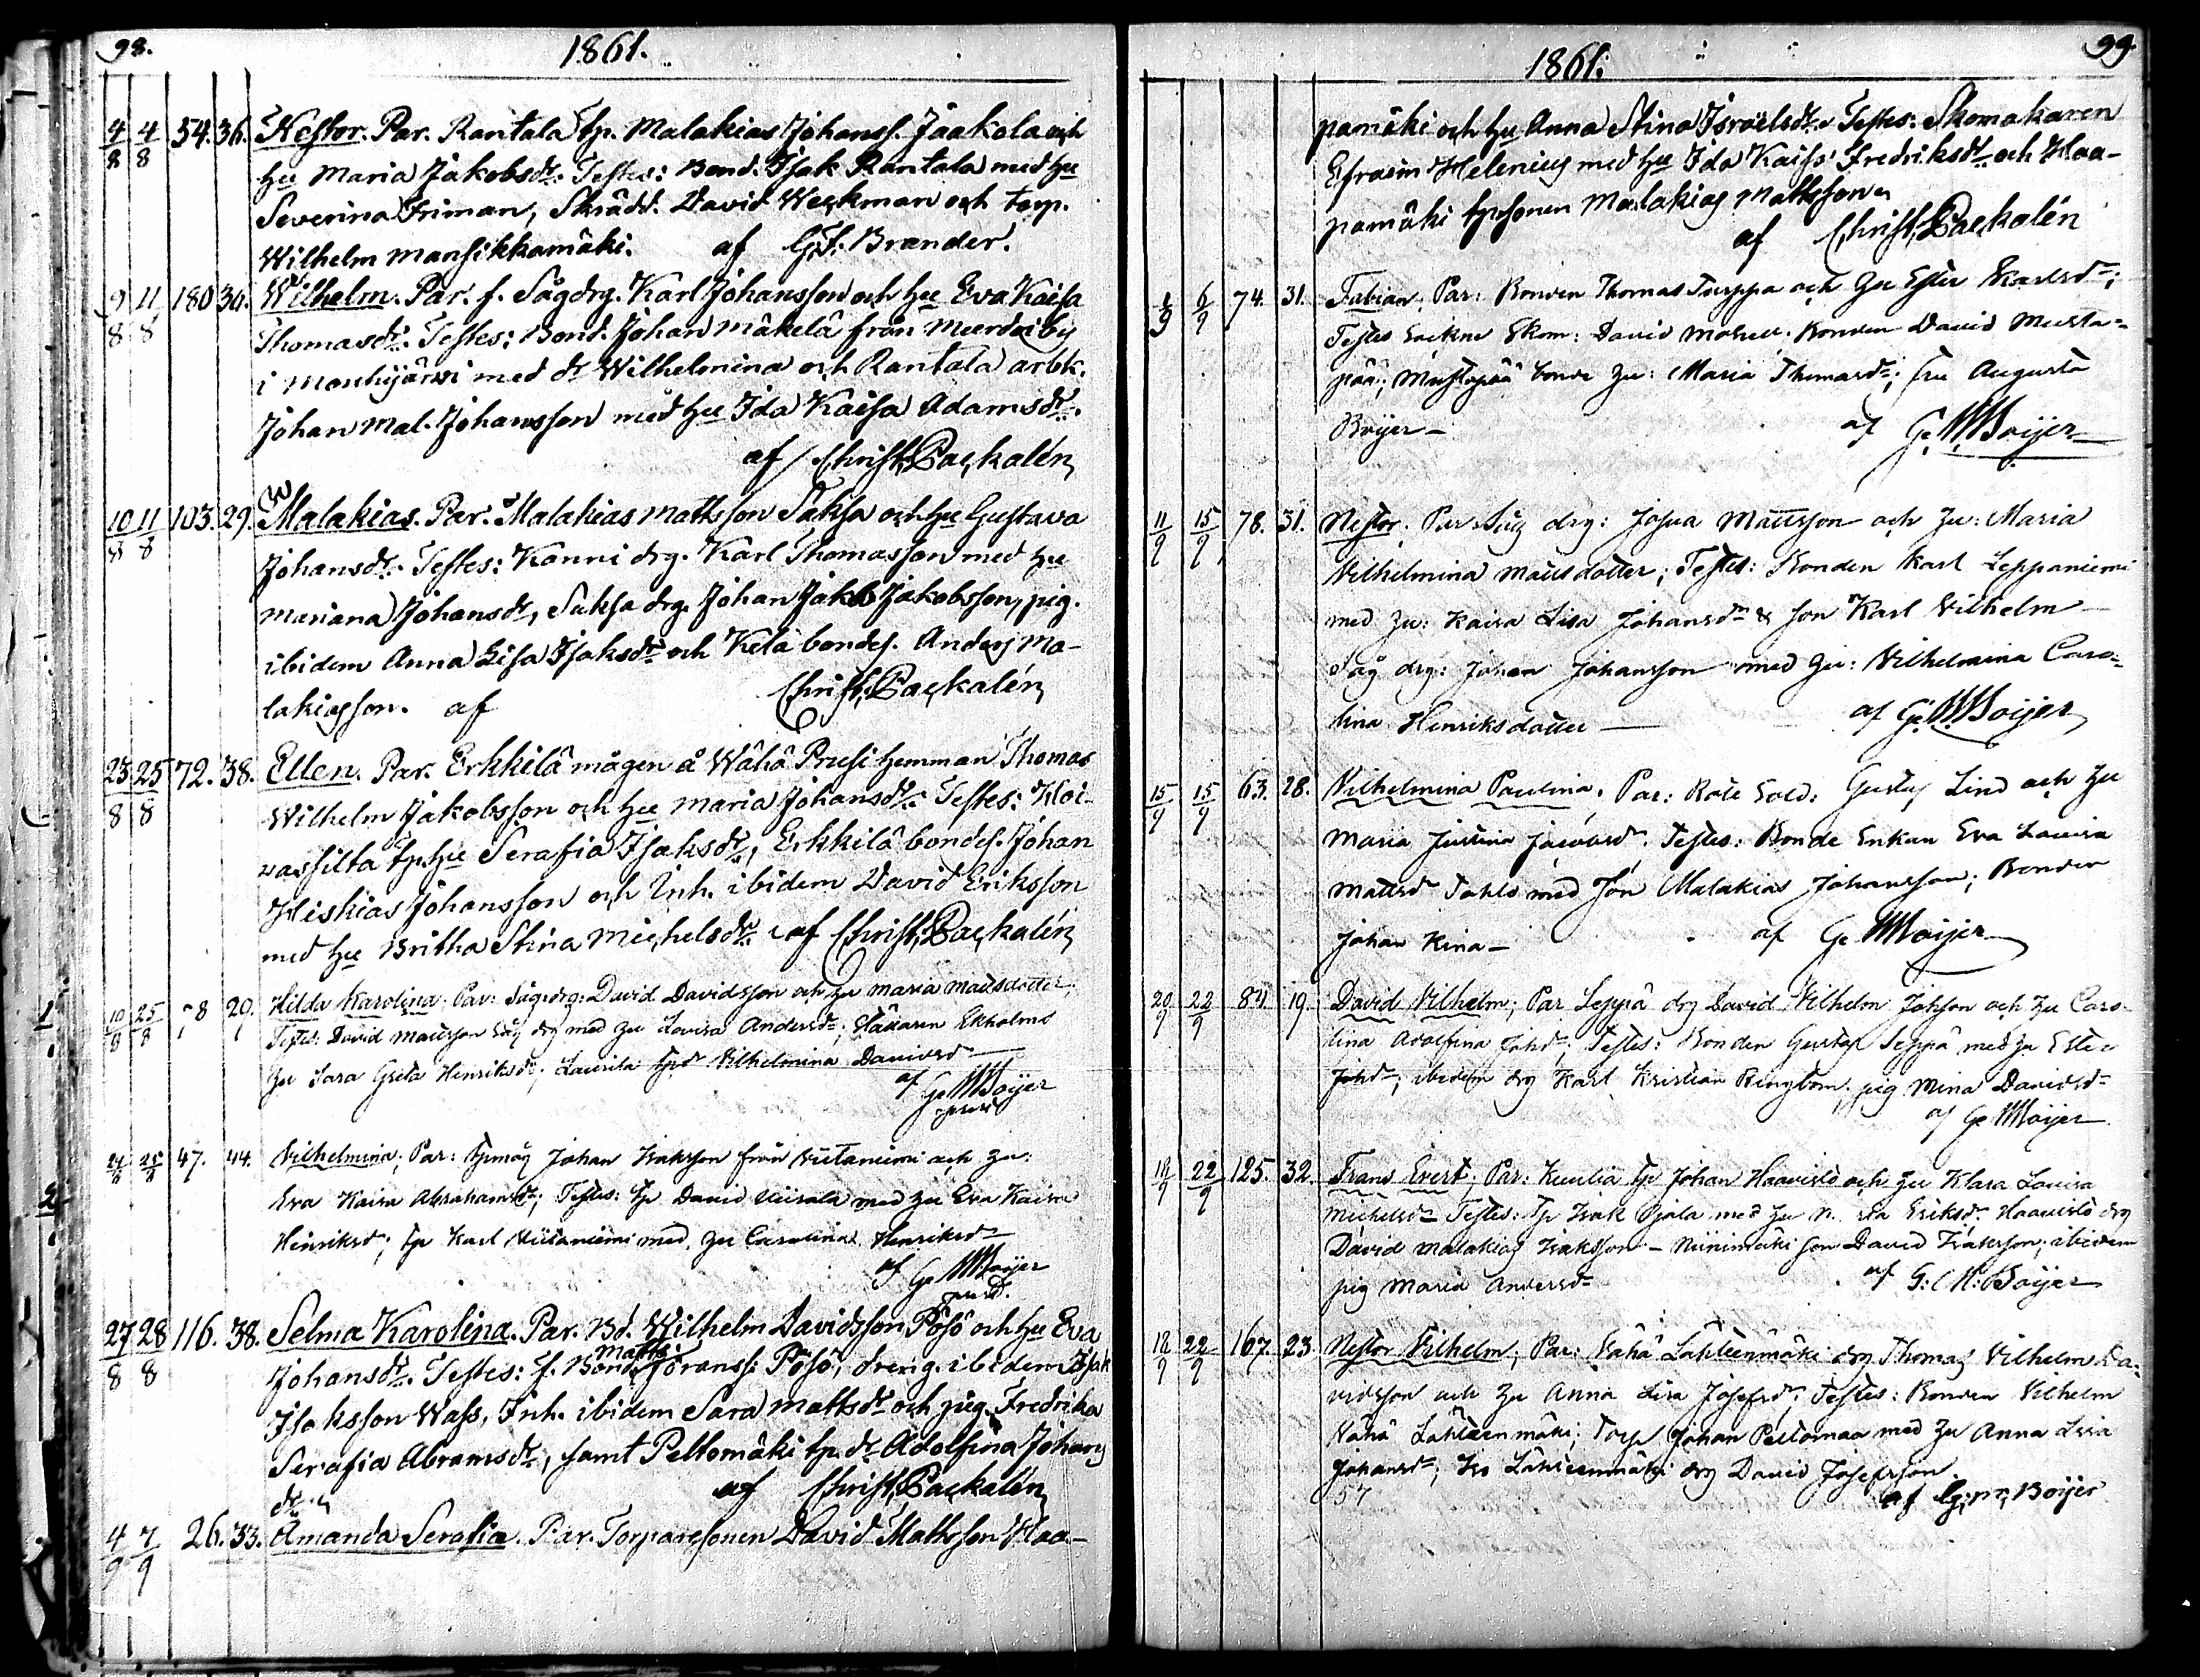 98.
1861.
4/8 4/8 54. 36. Nestor. Par. Rantala tp. Malakias Johanss. Jaakola och
hu Maria Jakobsdr. Testes: Bond. Isak Rantala med hu
Severina Friman, Skrädd. David Weckman och torp.
Wilhelm Mansikkamäki. af G.F. Brander.
9/8 11/8 180 30. Wilhelm. Par. f. Sågdrg. Karl Johansson och hu Eva Kaisa
Thomasdr. Testes: Bond. Johan Mäkelä från Meerdai by
i Mouhijärwi med dr Wilhelmina och Rantala arbk.
Johan Mal. Johansson med hu Ida Kaisa Adamsdr.
af Christ. Packalén
10/8 11/8 103. 29. Malakias. Par. Malakias Mattsson Saksa och hu Gustava
Johansdr. Testes: Kanni drg. Karl Thomasson med hu
Mariana Johansdr, Saksa drg. Johan Jakob Jakobsson, pig.
ibidem Anna Lisa Isaksdr och Kelä bondes. Anders Ma-
lakiasson. af Christ. Packalén
23/8 25/8 72. 38. Ellen. Par. Erkkilä mågen å Wähä Prusi hemman Thomas
Wilhelm Jakobsson och hu Maria Johansdr. Testes: Koi-
vassilta tp. hu Serafia Isaksdr, Erkkilä bondes. Johan
Hiskias Johansson och Inh. ibidem David Eriksson
med hu Britha Stina Michelsdr. af Christ. Packalén
10/8 25/8 78 29. Hilda Karolina. Par: Sågdrg: David Davidsson och hu Maria Mattsdotter;
Testes: David Mattsson Såg drg med hu Lovisa Andersdr; Ekholms
hu Sara Greta Henriksdr. Laurila tpdr Vilhelmina Davidsdr
af G. M Boijer
24/8 25/8 47. 44. Vilhelmina; Par: tpmåg Johan Isaksson från Viitaniemi och hu:
Eva Kaisa Abrahamsdr; Testes: tp David Uusala med hu Eva Kaisa
Henriksdr; tp Karl Viitaniemi med hu Carolina Henriksdr
af G. M Boijer
27/8 28/8 116. 38. Selma Karolina. Par. Bd. Wilhelm Davidsson Pösö och hu Eva
Johansdr. Testes: f. Bond. Matts Göranss. Pösö, dreng. ibidem Isak
Isaksson Wass, Inh. ibidem Sara Mattsdr och pig. Fredrika
Serafia Abramsdr, samt Peltomäki tp. dr Adolfina Johans
dr. af Christ. Packalén
4/9 7/9 26. 33. Amanda Serafia. Par. Torparesonen David Mattsson Haa-
99.
1861.
pamäki och hu Anna Stina Israelsdr. Testes: Skomakaren
Efraim Helenius med hu Ida Kaisa Fredriksdr och Haa-
pamäki tpsonen Malakias Mattsson
af Christ. Packalén
1/9 6/9 74. 31. Fabian. Par: Bonden Thomas Turppa och hu Ester Karlsdr;
Testes Skom: David Bonden David Musta-
pää; Mustapää bonde hu: Maria Thomasdr; fru Augusta
Boijer – af G. M Boijer
11/9 15/9 78. 31. Nestor. Par. Såg drg: Josua Mattsson och hu: Maria
Vilhelmina Mattsdotter; Testes: Bonden Karl Leppäniemi
med hu: Kaisa Lisa Johansdr & son Karl Vilhelm
Såg drg: Johan Johansson med hu: Vilhelmina Caro-
lina Henriksdotter af G. M Boijer
15/9 15/9 63. 28. Vilhelmina Paulina. Par: Rote Sold: Gustaf Lind och hu
Maria Justina Jacobsdr. Testes: Bonde Enkan Eva Lovisa
Mattsdr Tahlo med Son Malakias Johansson; Bonden
Johan Kina – af G. M Boijer
20/9 22/9 84. 19. David Vilhelm; Par Seppä drg David Vilhelm Johsson och hu Caro-
lina Adolfina Johdr; Testes: Bonden Gustaf Seppä med hu Ester
Johdr; ibidem drg Karl Kristian Ringbom; pig Mina Davidsdr
af G. M Boijer
18/9 22/9 125. 32. Frans Evert; Par: Kuulia tp Johan Haavisto och hu Klara Lovisa
Michelsdr Testes: Tp Isak Ojala med hu Eriksdr. Haavisto drg
David Malakias Isaksson – Niinimäki son David Isaksson; ibidem
pig Maria Andersdr af G. M. Boijer
18/9 22/9 167. 23 Nestor Vilhelm; Par: Vähä Lähteenmäki drg Thomas Vilhelm Da-
vidsson och hu Anna Lisa Josefsdr; Testes: Bonden Vilhelm
Vähä Lähteenmäki; Torp Johan Peltomaa med hu Anna Lisa
Johansdr; Iso Lähteenmäki drg David Josefsson.
57 af G. M. Boijer